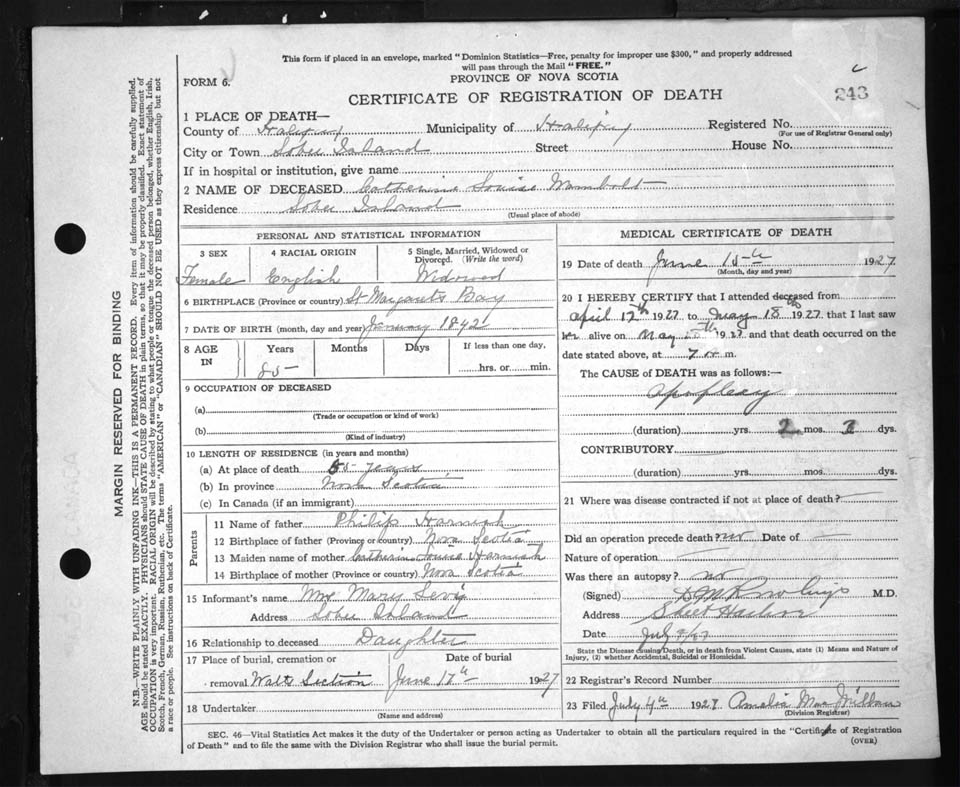 This form if placed in an envelope, marked "Dominion Statistics—Free, penalty for improper use $300," and properly addressed
will pass through the Mail "FREE."
FORM 6.
PROVINCE OF NOVA SCOTIA
CERTIFICATE OF REGISTRATION OF DEATH
243
1 PLACE OF DEATH—
County of Halifax Municipality of Halifax Registered No.
(For use of Registrar General only)
City or Town Sober Island Street House No.
If in hospital or institution, give name
2 NAME OF DECEASED Catherine Louise Wambolt
Residence Sober Island
(Usual place of abode)
PERSONAL AND STATISTICAL INFORMATION
3 SEX 4 RACIAL ORIGIN 5 Single, Married, Widowed or Divorced. (Write the word)
Female English Widowed
6 BIRTHPLACE (Province or country) St Margarets Bay
7 DATE OF BIRTH (month, day and year) January 1842
8 AGE IN Years Months Days If less than one day,
85 hrs. or min.
9 OCCUPATION OF DECEASED
(a)
(Trade or occupation or kind of work)
(b)
(Kind of industry)
10 LENGTH OF RESIDENCE (in years and months)
(a) At place of death 85 years
(b) In province Nova Scotia
(c) In Canada (if an immigrant)
Parents
11 Name of father Philip Harnish
12 Birthplace of father (Province or country) Nova Scotia
13 Maiden name of mother Catherin Louise Harnish
14 Birthplace of mother (Province or country) Nova Scotia
15 Informant's name Mrs Mary Levy
Address Sober Island
16 Relationship to deceased Daughter
17 Place of burial, cremation or Date of burial
removal Watt Section June 17th 1927
18 Undertaker
(Name and address)
MEDICAL CERTIFICATE OF DEATH
19 Date of death June 15th 1927
(Month, day and year)
20 I HEREBY CERTIFY that I attended deceased from
April 12th 1927 to May 18th 1927 that I last saw
alive on May 1927 and that death occurred on
date stated above, at 7 m.
The CAUSE of DEATH was as follows:—
Apoplexy
(duration) yrs. 2 mos. 3 dys.
CONTRIBUTORY
(duration) yrs. mos. dys.
21 Where was disease contracted if not at place of death? —
Did an operation precede death? no Date of —
Nature of operation —
Was there an autopsy? no
(Signed) M.D.
Address Sheet Harbor
Date July
State the Disease causing Death, or in death from Violent Causes, state (1) Means and Nature of
Injury, (2) whether Accidental, Suicidal or Homicidal.
22 Registrar's Record Number
23 Filed July 4th 1927 Amelia MacMillan
(Division Registrar)
SEC. 46—Vital Statistics Act makes it the duty of the Undertaker or person acting as Undertaker to obtain all the particulars required in the "Certificate of Registration
of Death" and to file the same with the Division Registrar who shall issue the burial permit.
(OVER)
MARGIN RESERVED FOR BINDING
N.B.—WRITE PLAINLY WITH UNFADING INK—THIS IS A PERMANENT RECORD. Every item of information should be carefully supplied.
AGE should be stated EXACTLY. PHYSICIANS should STATE CAUSE OF DEATH in plain terms, so that it may be properly classified. Exact statement of
OCCUPATION is very important. RACIAL ORIGIN will be described by stating to what people or tongue the deceased person belonged, whether English, Irish,
Scotch, French, German, Russian, Ruthenian, etc. The terms "AMERICAN" or "CANADIAN" SHOULD NOT BE USED as they express citizenship but not
a race or people. See instructions on back of Certificate.